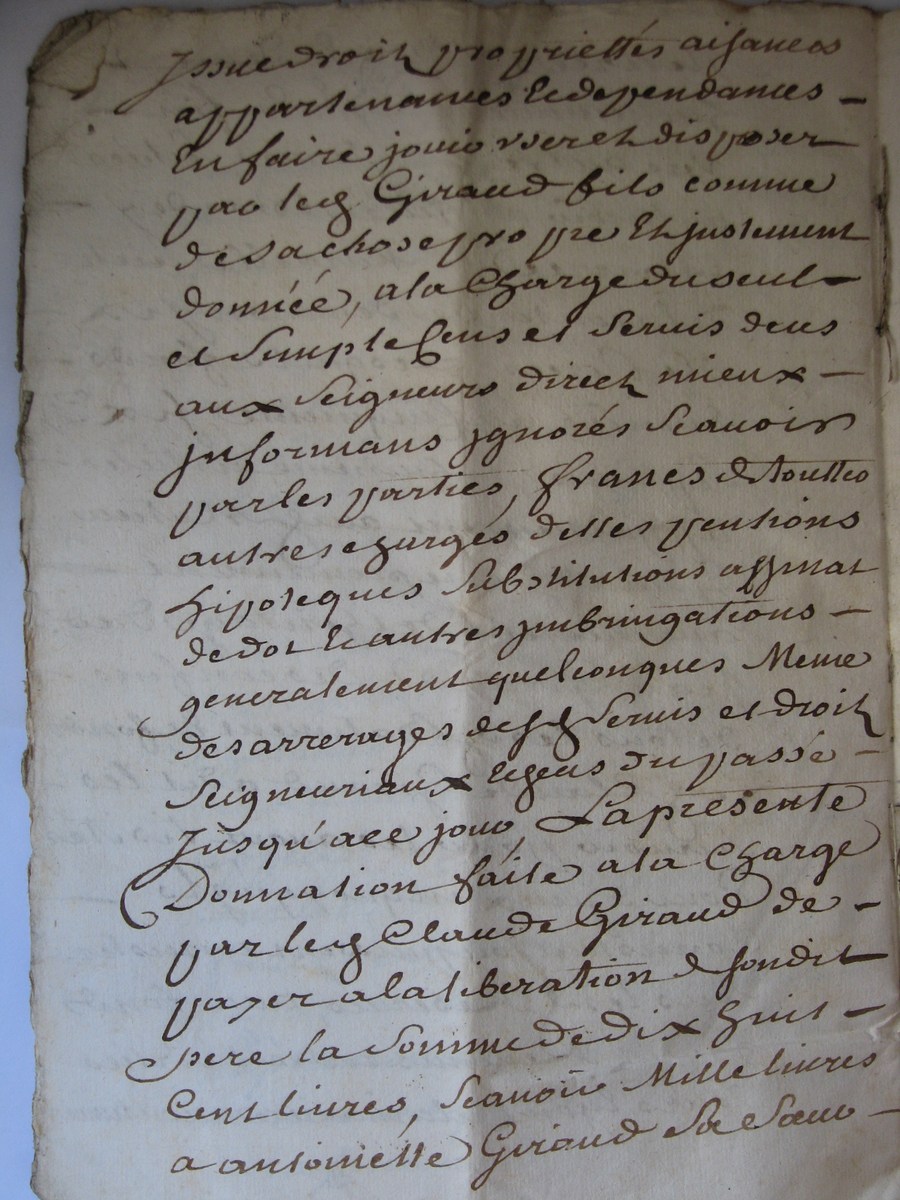 Issue droit propriettés aisances
appartenances & dependances –
En faire jouir user et disposer
par led Giraud fils comme
de sa chose propre Et justement
donnéé, a la Charge du seul –
et simple Cens et servis deus
aux seigneurs direct mieux –
informans ignorés scauoir
par les parties, francs de touttes
autres charges dettes pentions
hipoteques substitutions assinat
de dot & autres imbringations –
generalement quelconques Meme
des arrerages desd servis et droit
seigneuriaux & cens du passé –
Jusqu'a ce jour, La presente
Donnation faite a la Charge
par led Claude Giraud de –
payer a la liberation de sondit
pere la somme de dix huit –
Cent liures, scauoir Mille liures
a antoinette Giraud sa sœur –